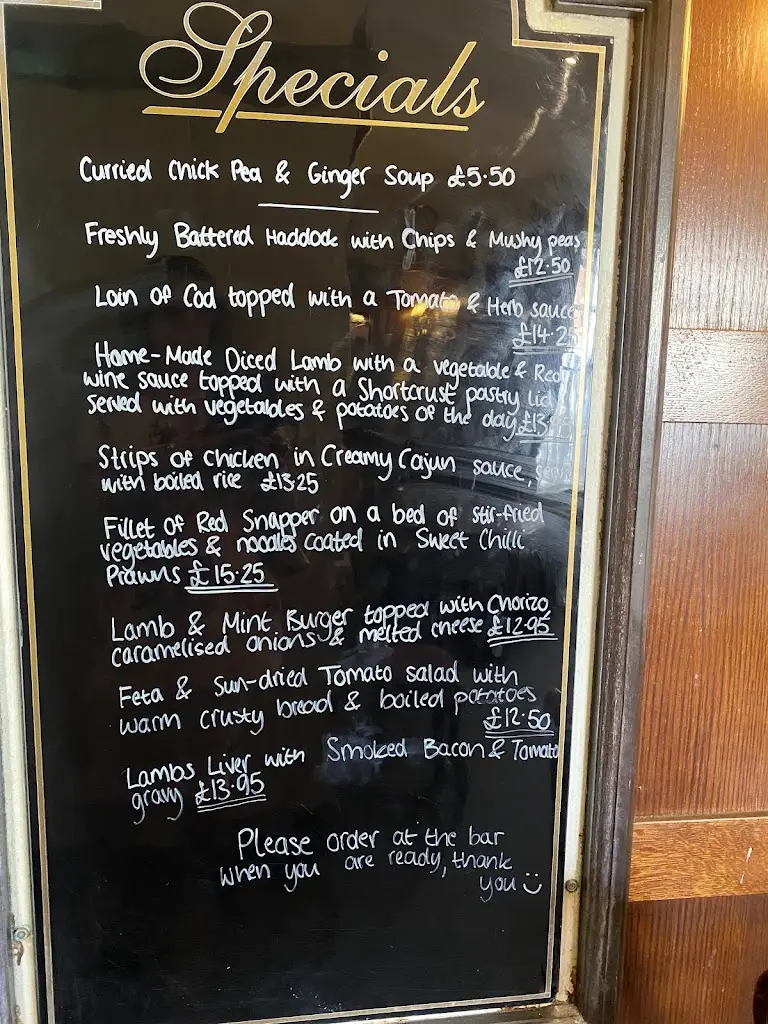 Specials
Curried Chick Pea & Ginger Soup £5.50
Freshly Battered Haddock with Chips & Mushy peas
£12.50
Loin of Cod topped with a Tomato & Herb sauce
£14.25
Home-Made Diced Lamb with a vegetable & Red
wine sauce topped with a Shortcrust pastry lid
served with vegetables & potatoes of the day
Strips of chicken in Creamy Cajun sauce,
with boiled rice £13.25
Fillet of Red Snapper on a bed of stir-fried
vegetables & noodles coated in Sweet Chilli
Prawns £15.25
Lamb & Mint Burger topped with Chorizo,
caramelised onions & melted cheese £12.95
Feta & Sun-dried Tomato salad with
warm crusty bread & boiled potatoes
£12.50
Lambs Liver with Smoked Bacon & Tomato
gravy £13.95
Please order at the bar
when you are ready, thank
you